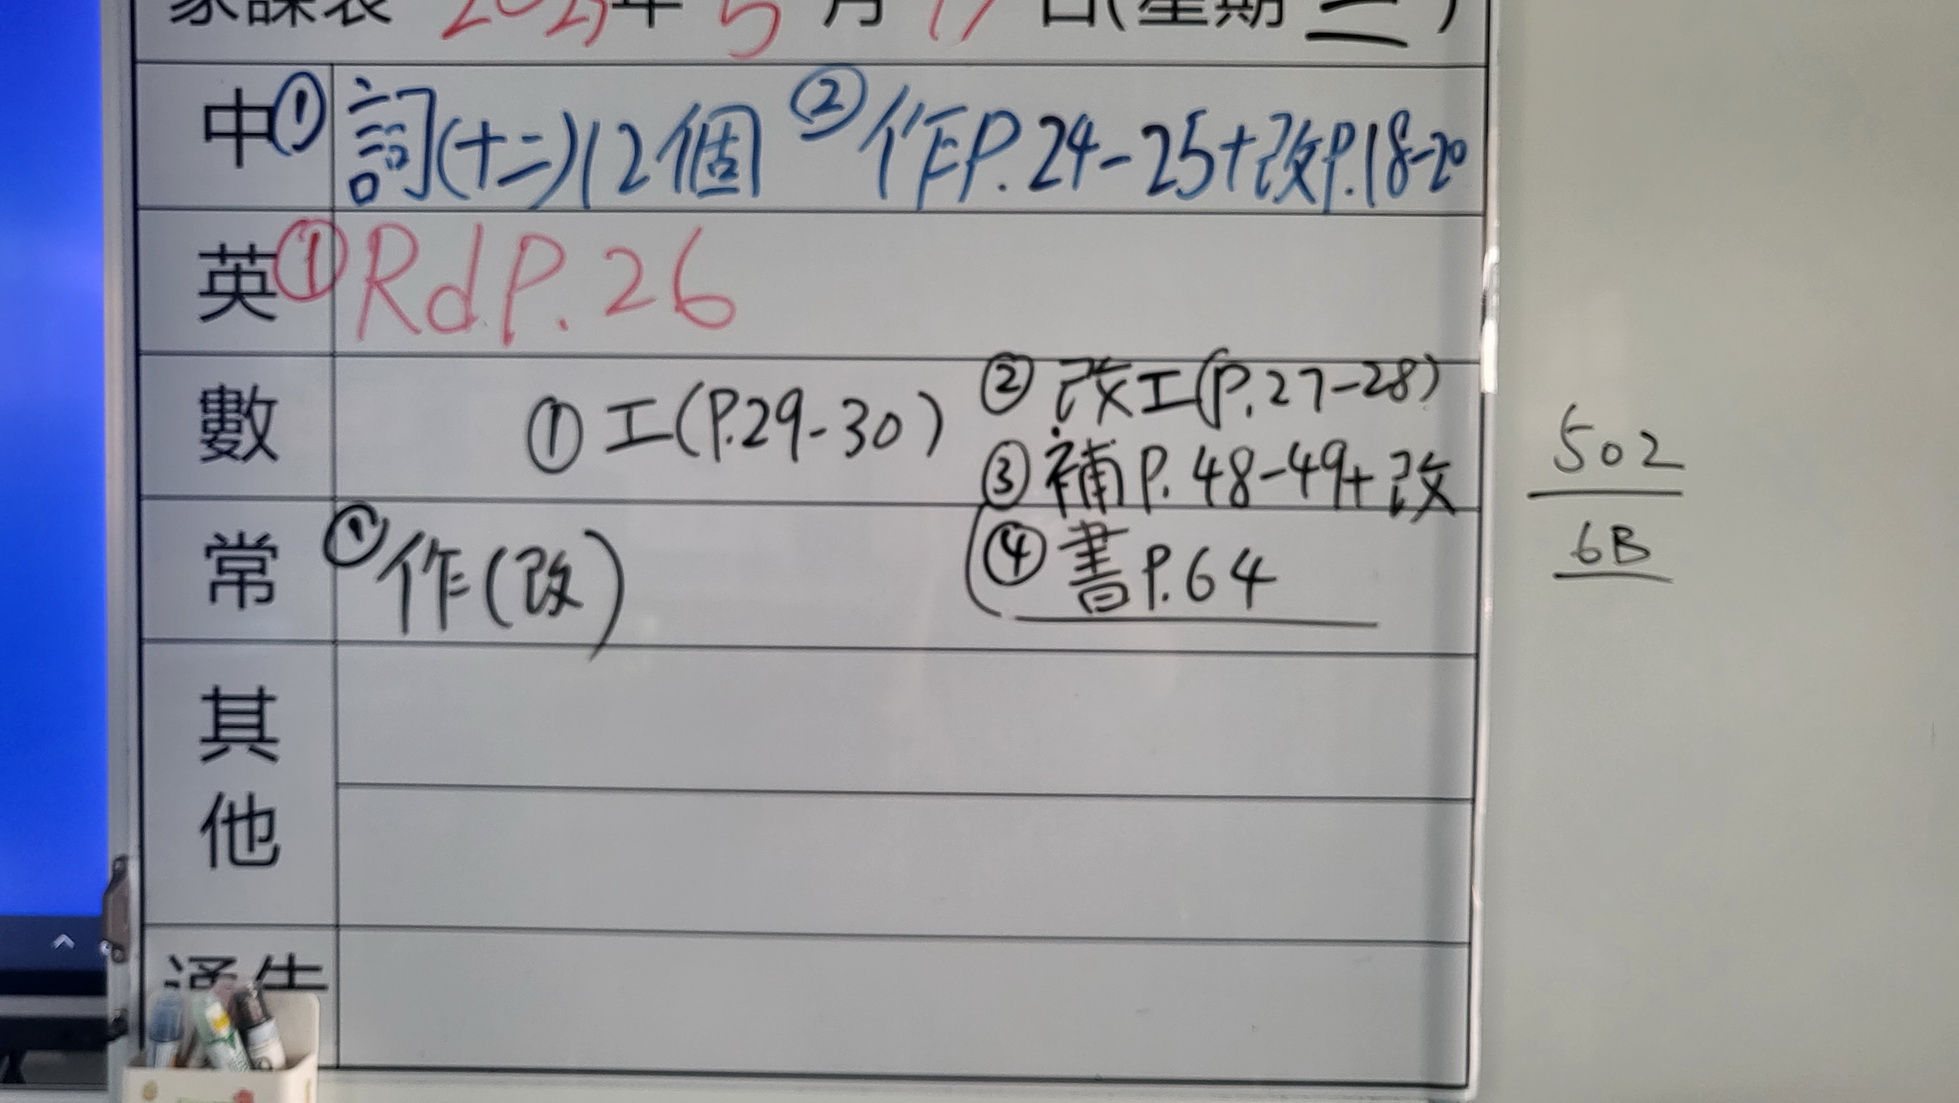 家課表 年5月 日(星期二)
中 ① 詞(十二)12個 ② 作P.24-25+改P.18-20
英 ① Rd P.26
數 ① 工(P.29-30) ② 改工(P.27-28)
③ 補P.48-49+改
常 ① 作(改) ④ 書P.64
其他
通告
502
6B